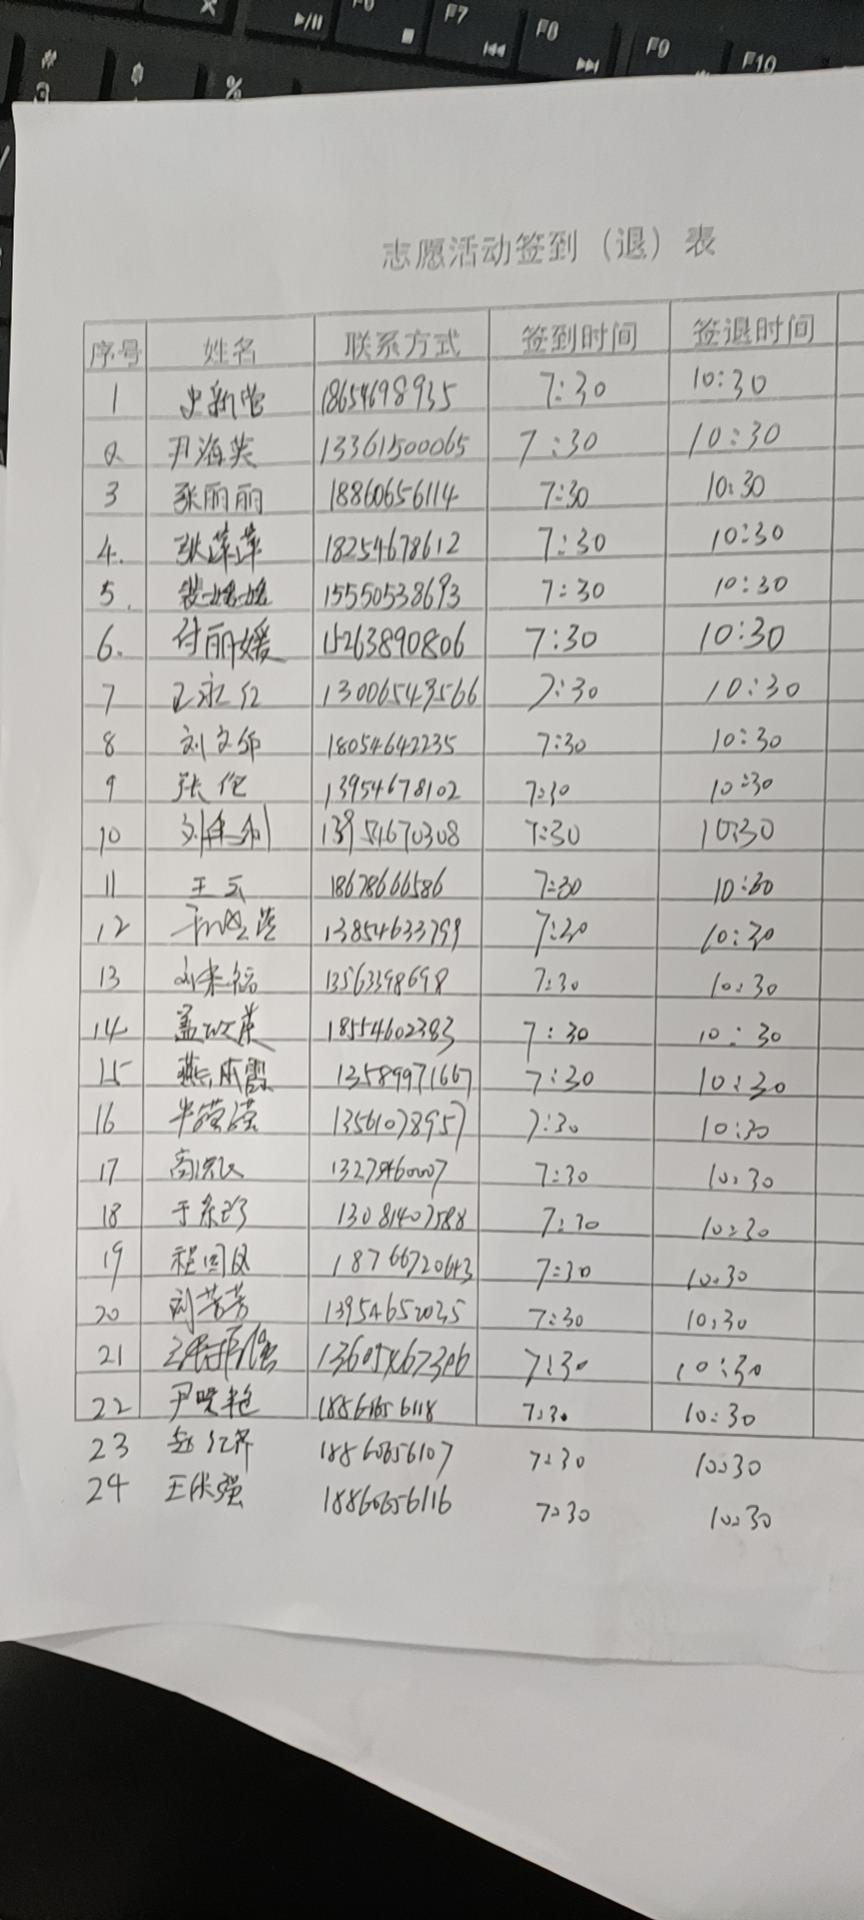 F7 F8 F9 F10
%
志愿活动签到（退）表
序号 姓名 联系方式 签到时间 签退时间
1 史新营 18654698935 7:30 10:30
2 尹海英 13361500065 7:30 10:30
3 张丽丽 18860656114 7:30 10:30
4. 张萍萍 18254678612 7:30 10:30
5. 裴艳艳 15550538693 7:30 10:30
6. 付丽媛 15263890806 7:30 10:30
7 王永红 13006549566 7:30 10:30
8 刘文邦 18054642235 7:30 10:30
9 张伦 13954678102 7:30 10:30
10 13954670308 7:30 10:30
11 王云 18678666586 7:30 10:30
12 13854633799 7:30 10:30
13 刘来福 13563398698 7:30 10:30
14 孟文英 18554602383 7:30 10:30
15 13589971667 7:30 10:30
16 13561078957 7:30 10:30
17 13279460007 7:30 10:30
18 于东珍 13081407588 7:30 10:30
19 程国凤 18766720643 7:30 10:30
20 刘芳芳 13954652035 7:30 10:30
21 7:30 10:30
22 尹晓艳 18860656118 7:30 10:30
23 赵红齐 18860656107 7:30 10:30
24 王伏强 18860656116 7:30 10:30